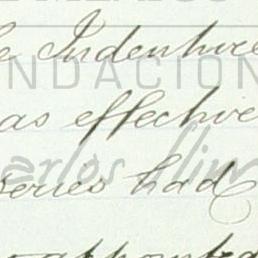 Indenture
NDACION
as effective
Carlos Slim
series had